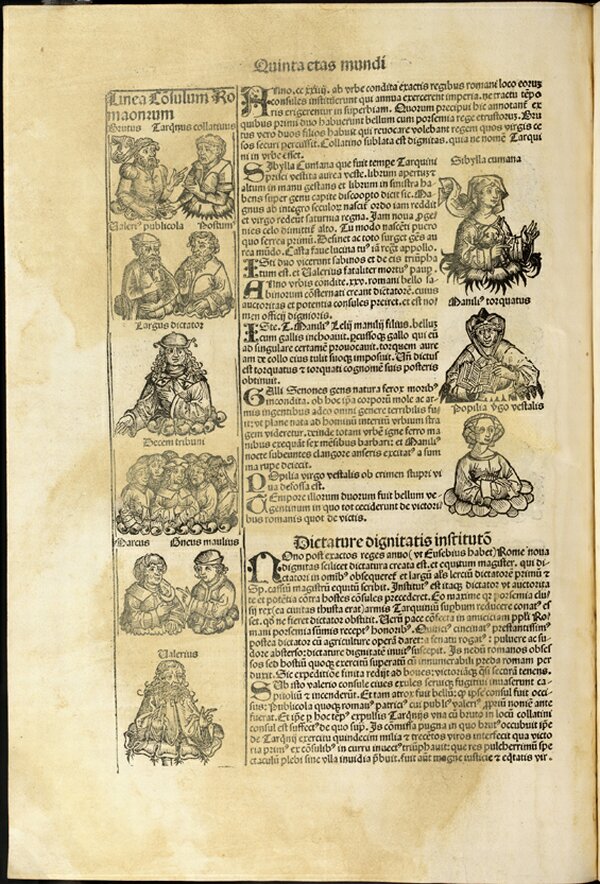 Quinta etas mundi
Linea Cōsulum Ro
maonrum
Brutus Tarqnus collatinus
Valeri⁹ publicola Postum⁹
Largus dictator
Decem tribuni
Marcus Gneus manlius
Valerius
Anno .cc xxiiij. ab vrbe condita exactis regibus romani loco eoruꝫ
consules instituerunt qui annua exercerent imperia. ne tractu tēpo
ris erigerentur in superbiam. Quorum precipui hic annotant̄ ex
quibus primi duo habuerunt bellum cum porsenia rege etruscoruꝫ. Bru
tus vero duos filios habuit qui reuocare volebant regem quos virgis ce
sos securi percussit. Collatino sublata est dignitas. quia ne nomē Tarqui
ni in vrbe esset.
Sibylla Cumana que fuit tempe Tarquini
prisci vestita aurea veste. librum apertuꝫ
altum in manu gestans et librum in sinistra ha
bens super genu capite discoopto dicit sic. Ma
gnus ab integro seculoꝝ nascit̄ ordo iam reddit
et virgo redeūt saturnia regna. Jam noua ꝓge
nies celo dimittit̄ alto. Tu modo nascēti puero
quo ferrea primū. Desinet ac toto surget gēs au
rea mūdo. Casta faue lucina tu⁹ iā regꝫ appollo.
Isti duo vicerunt sabinos et de eis triūpha
tum est. et Valerius fataliter mortu⁹ paup.
Anno vrbis condite .xxv. romani bello sa
binorum cōsternati creant dictatorē. cuius
auctoritas et potentia consules preiret. et est no
men officij dignioris.
Iste. T. Manili⁹ Lelij manilij filius. belluꝫ
cum gallis inchoauit. ꝑcussoqꝫ gallo qui eū
ad singulare certamē prouocauit. torquem aure
am de collo eius tulit suoqꝫ imposuit. Un̄ dictus
est torquatus ⁊ torquati cognomē suis posteris
obtinuit.
Galli Senones gens natura ferox morib⁹
incondita. ob hoc ip̄a corpoꝝ mole ac ar
mis ingentibus adeo omni genere terribilis fu
it: vt plane nata ad hominū interitū vrbium stra
gem videretur. deinde totam vrbē igne ferro ma
nibus exequāt̄ sex mēsibus barbari: et Manili⁹
nocte subeuntes clangore anseris excitat⁹ a sum
ma rupe deiecit.
Popilia virgo vestalis ob crimen stupri vi
ua defossa est.
Tempore illorum duorum fuit bellum ve
gentinum in quo tot ceciderunt de victori
bus romanis quot de victis.
Sibylla cumana
Manili⁹ torquatus
Popilia v̄go vestalis
Dictature dignitatis institutō
Nono post exactos reges anno (vt Eusebius habet) Rome noua
dignitas scilicet dictatura creata est. et equitum magister. qui di-
ctatori in omīb⁹ obsequeret̄ et largū al̓s lerciū dictatorē primū ⁊
Sp. cassiū magistrū equitū scribit. Institut⁹ est itaqꝫ dictator vt auctorita
te et potētia cōtra hostes cōsules precederet. Eo maxime qꝫ porsemia clu
sij rex (ea ciuitas thusta erat) armis Tarquiniū suphum reducere conat⁹ es
set. qd̄ ne fieret dictator obstitit. Uerū pace cōfecta in amiciciam ppl̓i Ro
mani porsemia sūmis recept⁹ honorib⁹. Quinci⁹ cincinat⁹ prestantissim⁹
postea dictator cū agriculture operā daret: a senatu rogat⁹: puluere ac su-
dore absterso: dictature dignitatē inuit⁹ suscepit. Is nedū romanos obses
sos sed hostiū quoqꝫ exercitū superatū cū innumerabili preda romam per
duxit. Sic expeditione finita redijt ad boues: victoriāqꝫ q̄si secerā tenens.
Sub isto valerio consule ciues exules serui⁹ fugitiui inuaserunt ca-
pitoliū ⁊ incenderūt. Et tam atrox fuit bellū: ꝙ ip̄se consul fuit occi-
sus. Publicola quoqꝫ roman⁹ patrici⁹ cui publi⁹ valeri⁹ ꝓpriū nomē ante
fuerat. Et ip̄e p⁹ hoc tēp⁹ expulsis Tarqnijs vna cū bruto in locū collatini
consul est suffect⁹ de quo sup̄. Is cōmissa pugna in quo brut⁹ occubuit ip̄e
de Tarqnij exercitu quindecim milia ⁊ trecētos viros intersecit qua victo
ria prim⁹ ex cōsulib⁹ in curru inuect⁹ triūphauit: que res pulcherrimū spe
ctaculū plebi sine vlla inuidia p̄buit. fuit aūt magne iusticie ⁊ eq̄tatis vir.